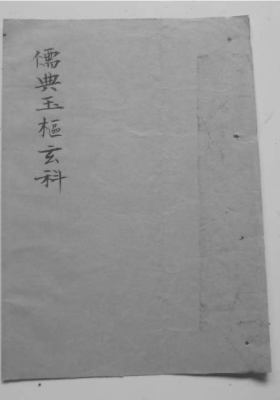 儒典玉樞玄科